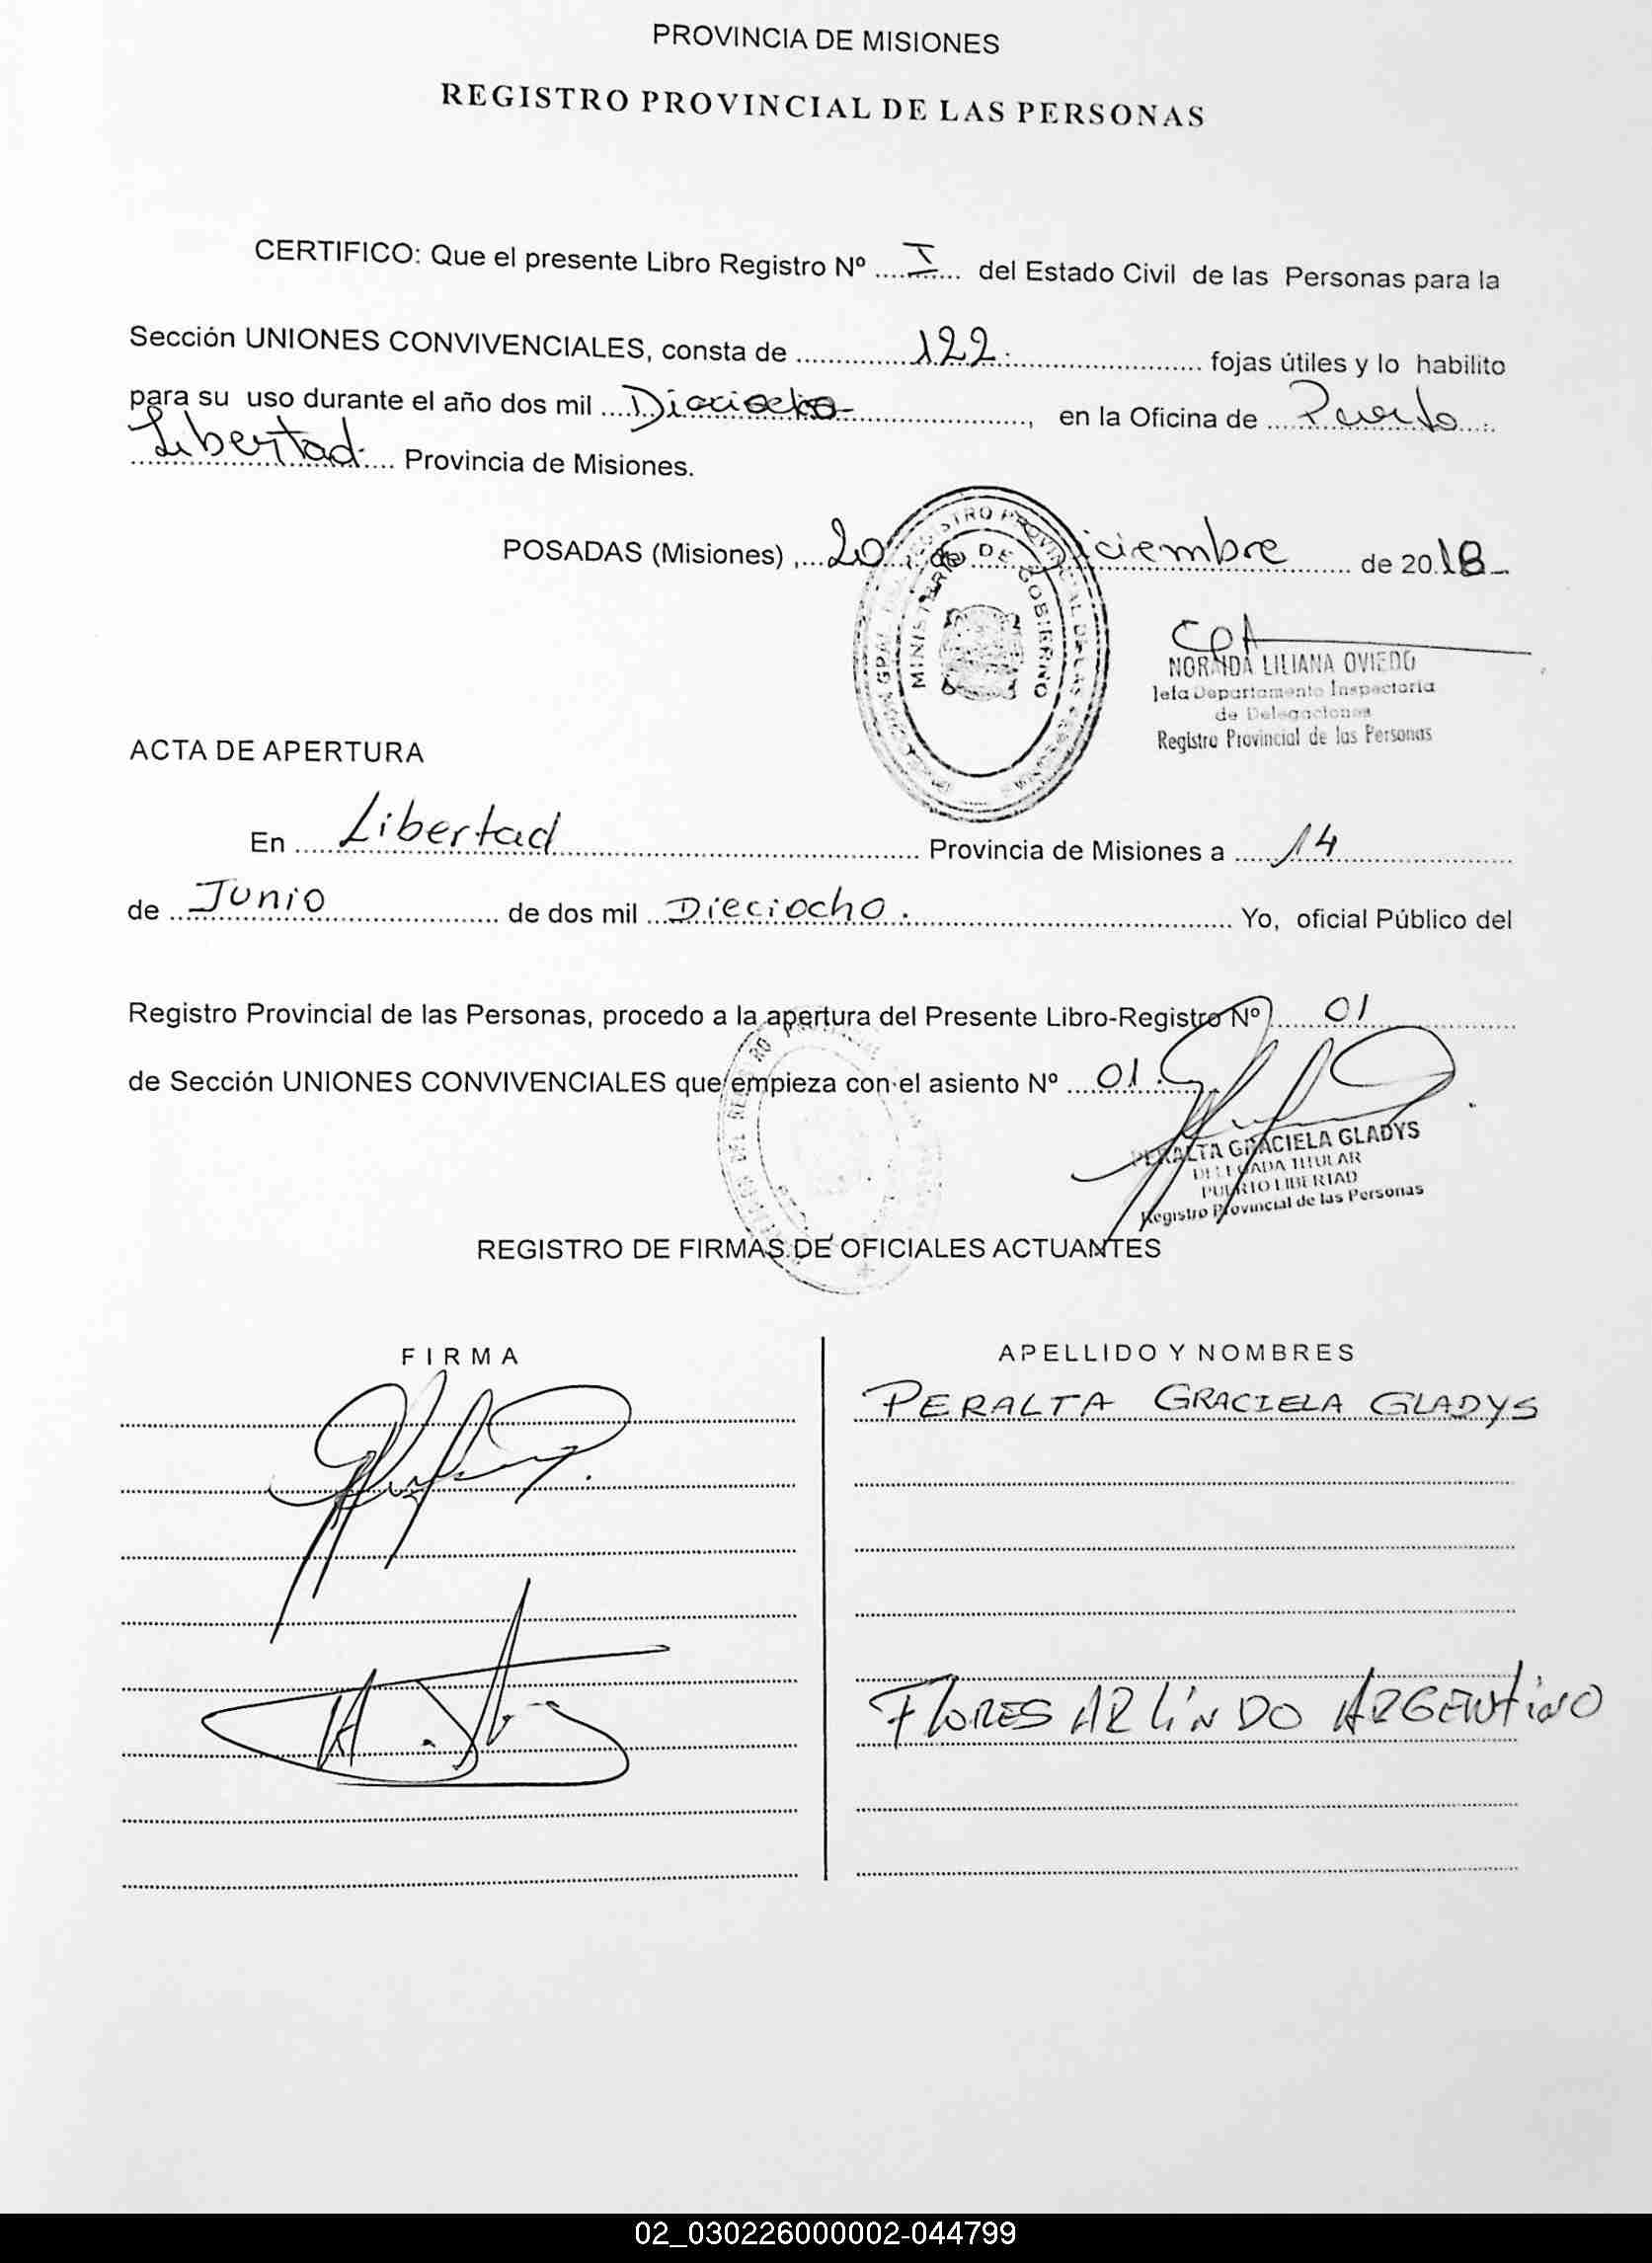 PROVINCIA DE MISIONES
REGISTRO PROVINCIAL DE LAS PERSONAS
CERTIFICO: Que el presente Libro Registro Nº ....I.... del Estado Civil de las Personas para la
Sección UNIONES CONVIVENCIALES, consta de ....122.... fojas útiles y lo habilito
para su uso durante el año dos mil ....Dieciocho...., en la Oficina de ....Puerto....
....Libertad.... Provincia de Misiones.
POSADAS (Misiones) ,...20 de Diciembre.... de 2018
REGISTRO PROVINCIAL DE LAS
MINISTERIO DE GOBIERNO
NORAIDA LILIANA OVIEDO
Jefa Departamento Inspectoría
de Delegaciones
Registro Provincial de las Personas
ACTA DE APERTURA
En ....Libertad.... Provincia de Misiones a ....14....
de ....Junio.... de dos mil ....Dieciocho.... Yo, oficial Público del
Registro Provincial de las Personas, procedo a la apertura del Presente Libro-Registro Nº ....01....
de Sección UNIONES CONVIVENCIALES que empieza con el asiento Nº ....01....
PERALTA GRACIELA GLADYS
DELEGADA TITULAR
PUERTO LIBERTAD
Registro Provincial de las Personas
REGISTRO DE FIRMAS DE OFICIALES ACTUANTES
FIRMA
APELLIDO Y NOMBRES
PERALTA GRACIELA GLADYS
FLORES ARLíNDO ARGENTINO
02_030226000002-044799